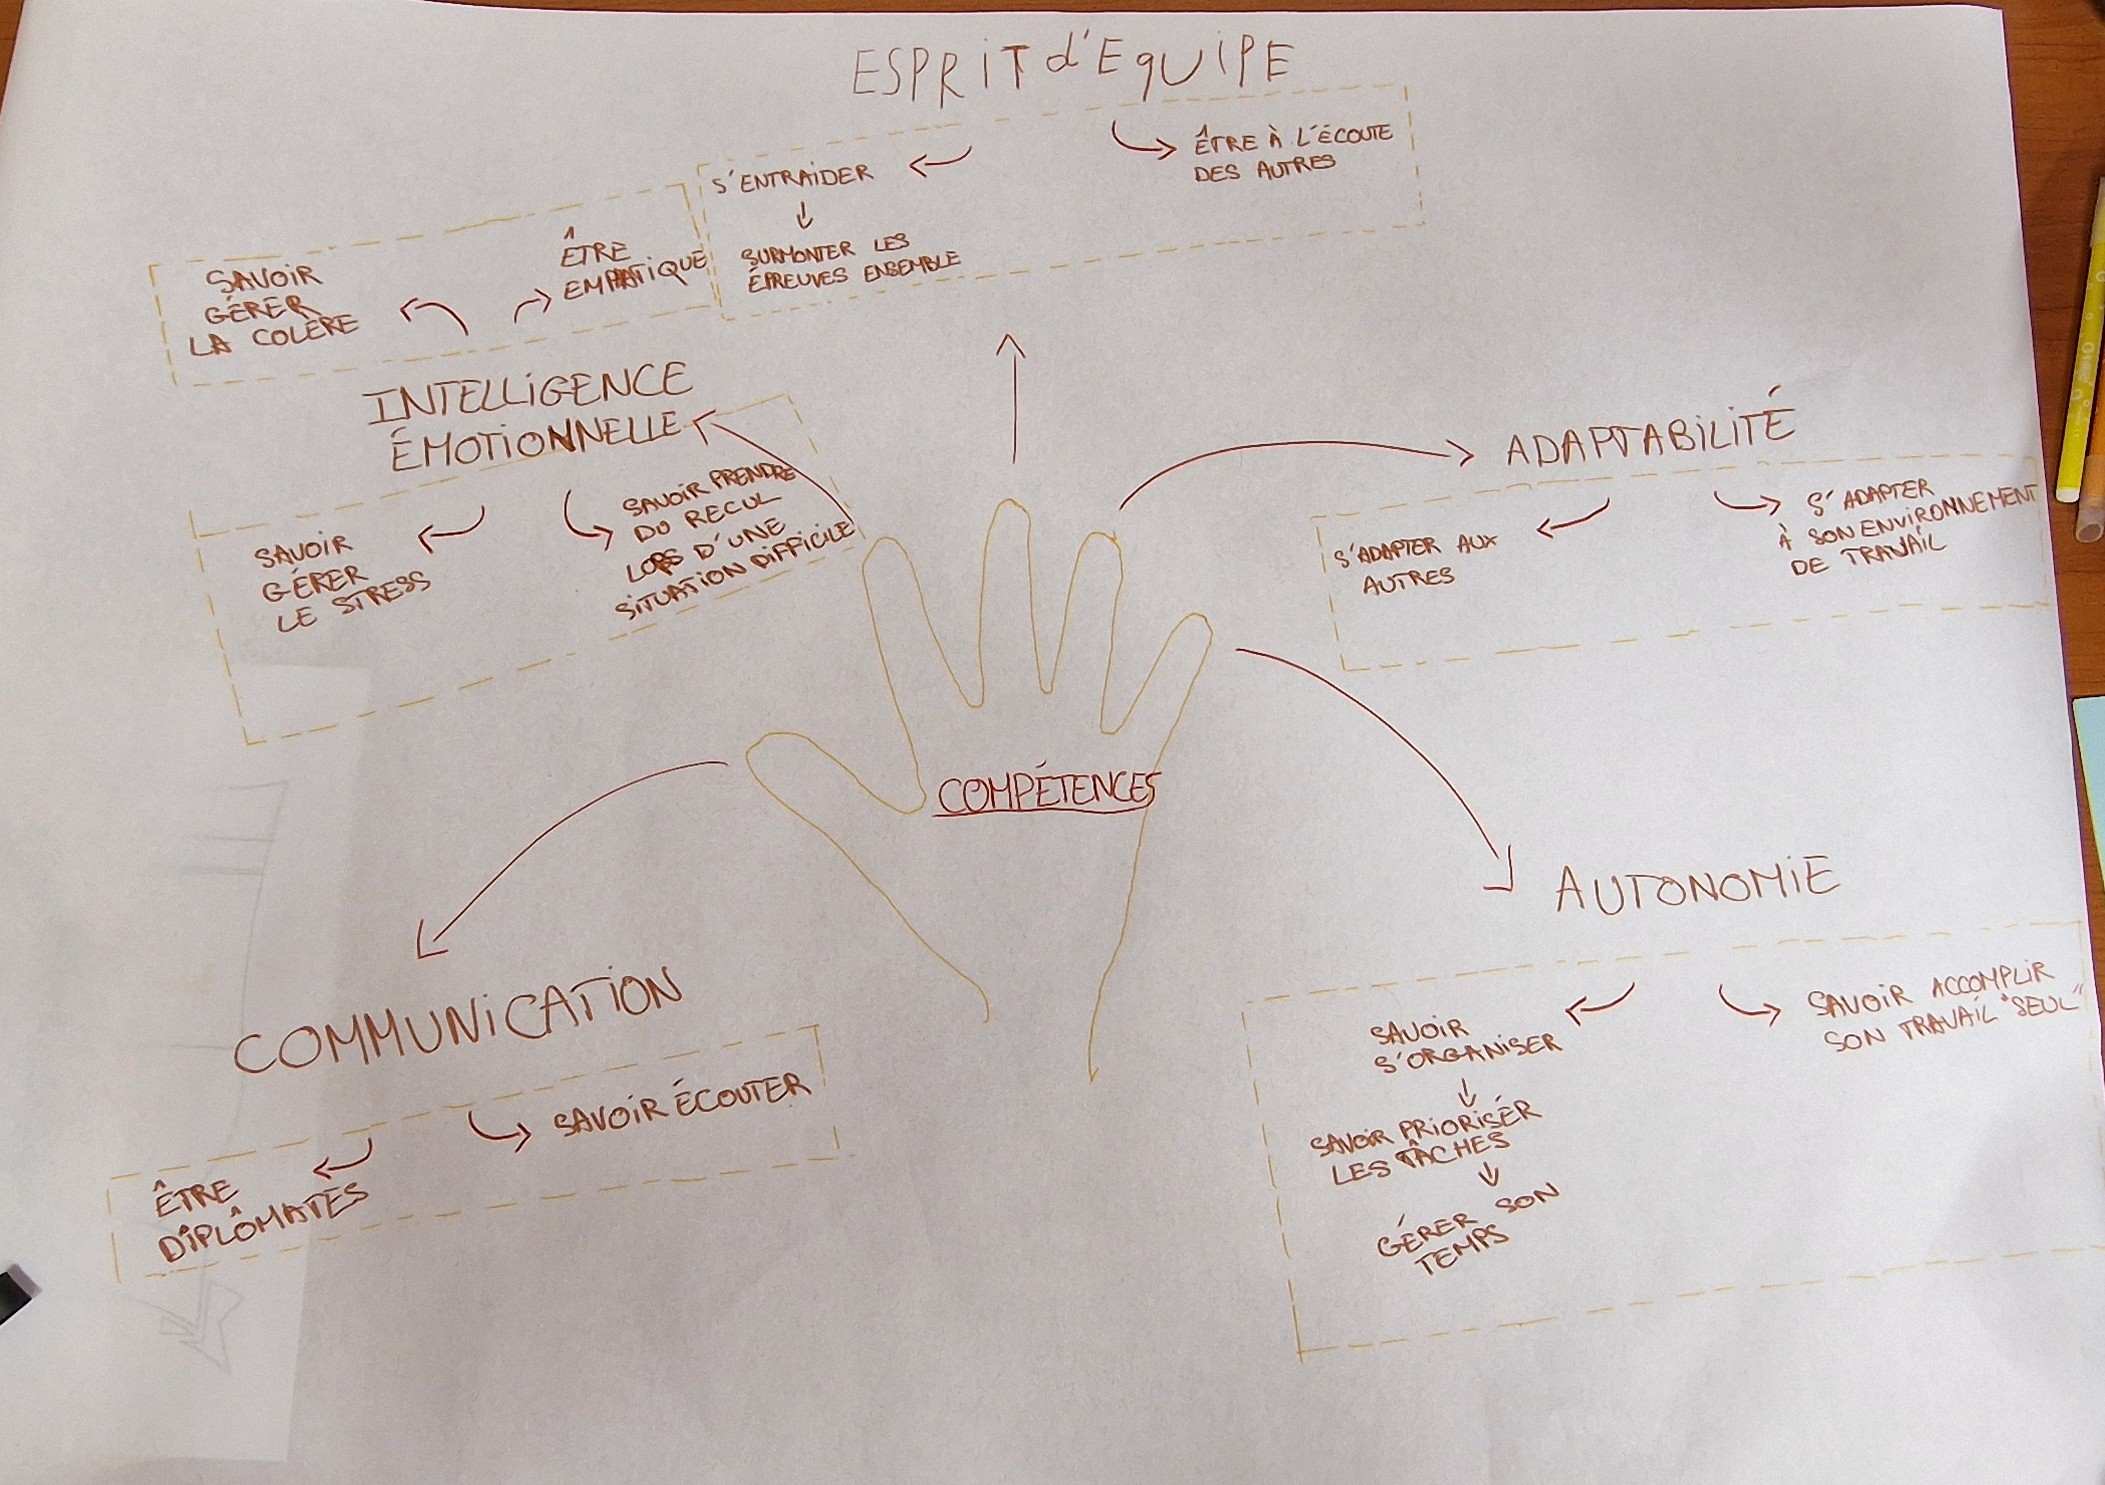 ESPRIT d'EQUIPE
S'ENTRAIDER
SURMONTER LES
ÉPREUVES ENSEMBLE
ÊTRE À L'ÉCOUTE
DES AUTRES
SAVOIR
GÉRER
LA COLÈRE
ÊTRE
EMPATIQUE
INTELLIGENCE
ÉMOTIONNELLE
SAVOIR
GÉRER
LE STRESS
SAVOIR PRENDRE
DU RECUL
LORS D'UNE
SITUATION DIFFICILE
ADAPTABILITÉ
S'ADAPTER AUX
AUTRES
S'ADAPTER
À SON ENVIRONNEMENT
DE TRAVAIL
COMPÉTENCES
AUTONOMIE
SAVOIR
S'ORGANISER
SAVOIR PRIORISÉR
LES TÂCHES
GÉRER SON
TEMPS
SAVOIR ACCOMPLIR
SON TRAVAIL "SEUL"
COMMUNICATION
ÊTRE
DIPLÔMATES
SAVOIR ÉCOUTER